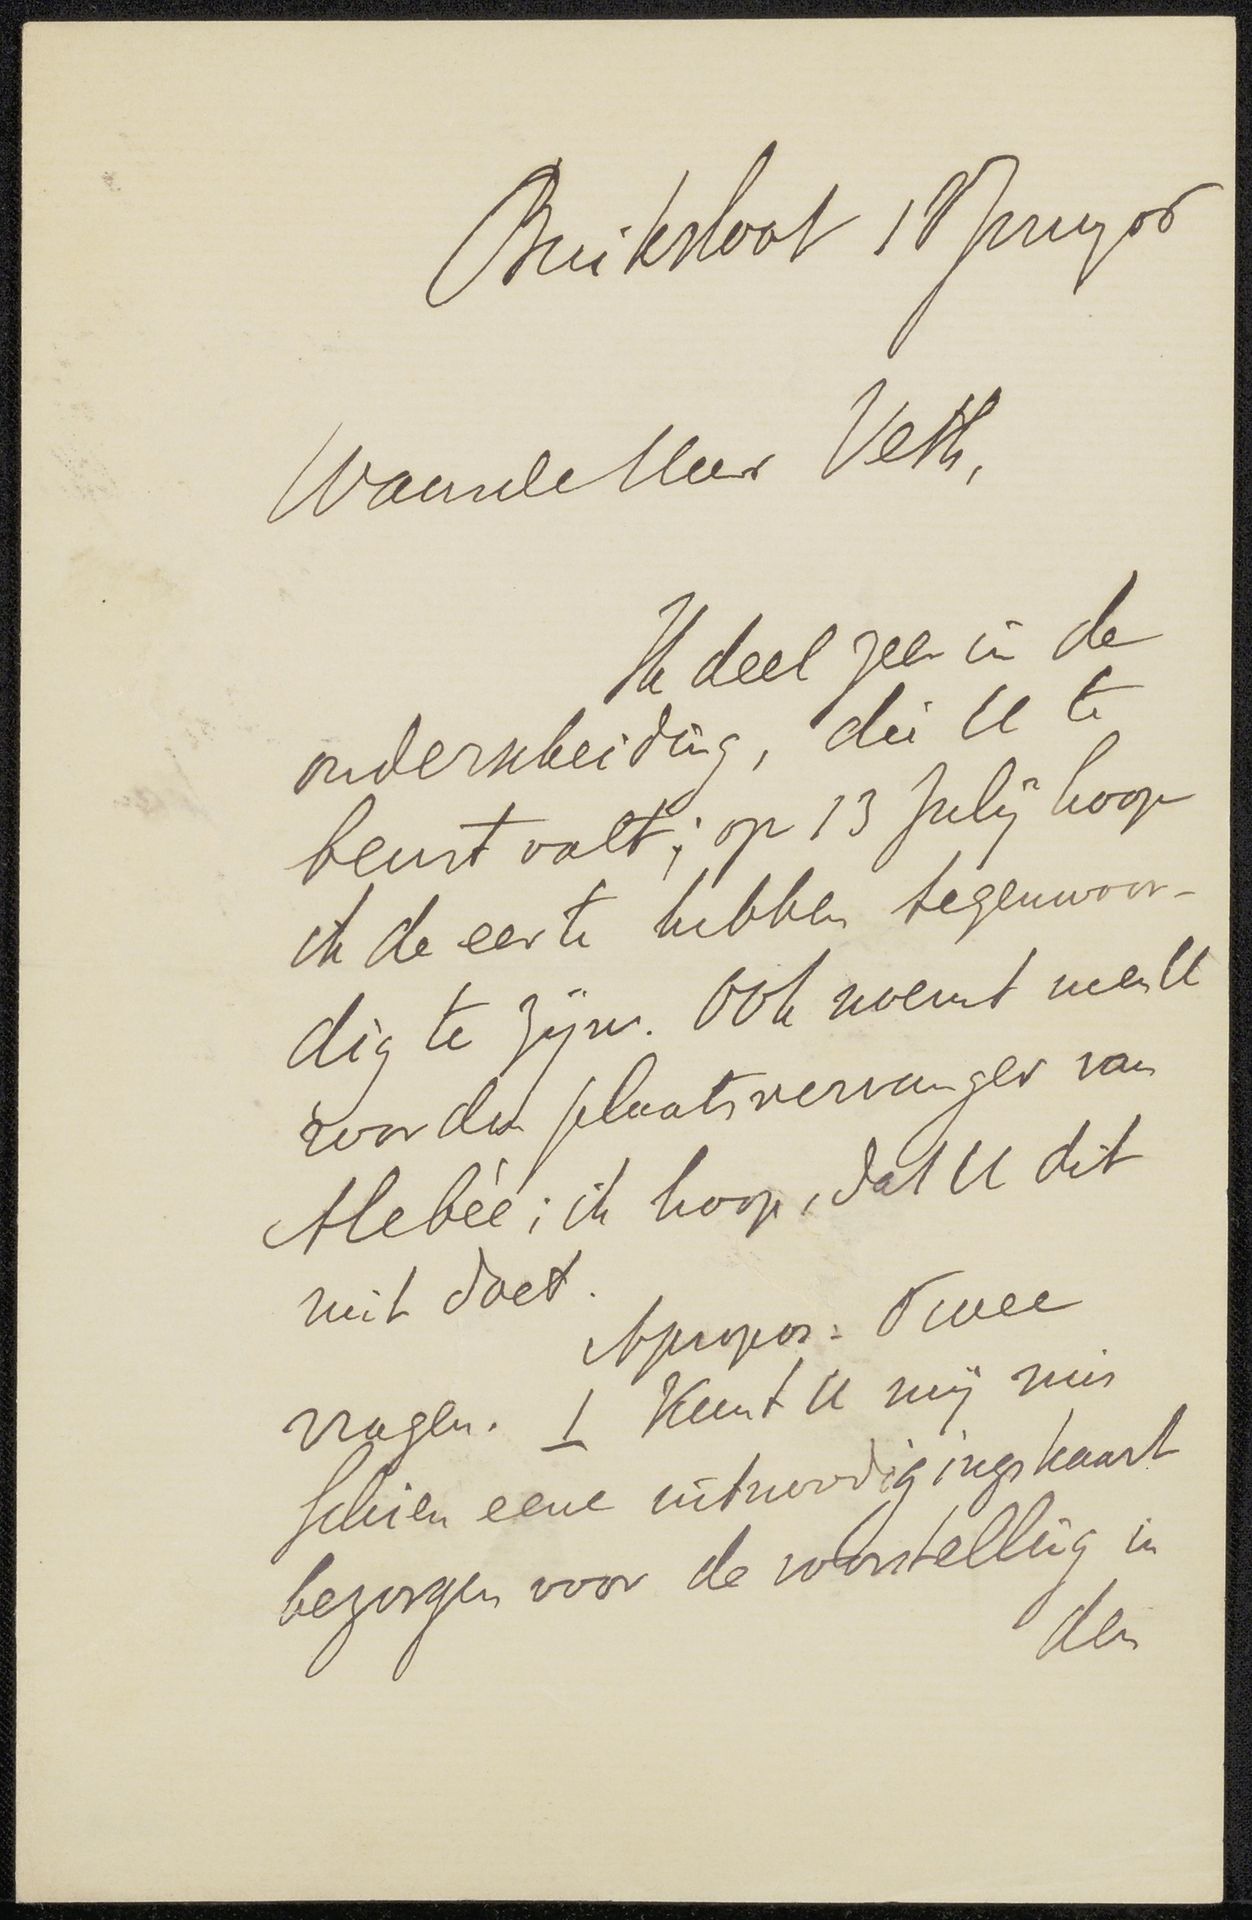 Buiksloot 18 Juny 06
Waarde Heer Veth,
Ik deel zeer in de
onderscheiding, die U te
beurt valt; op 13 July hoop
ik de eer te hebben tegenwoor-
dig te zijn. Ook noemt men U
voor den plaatsvervanger van
Allebée; ik hoop, dat U dit
niet doet.
Apropos: Twee
vragen. 1 Kunt U mij mis
schien eene uitnoodigingskaart
bezorgen voor de voorstelling in
den